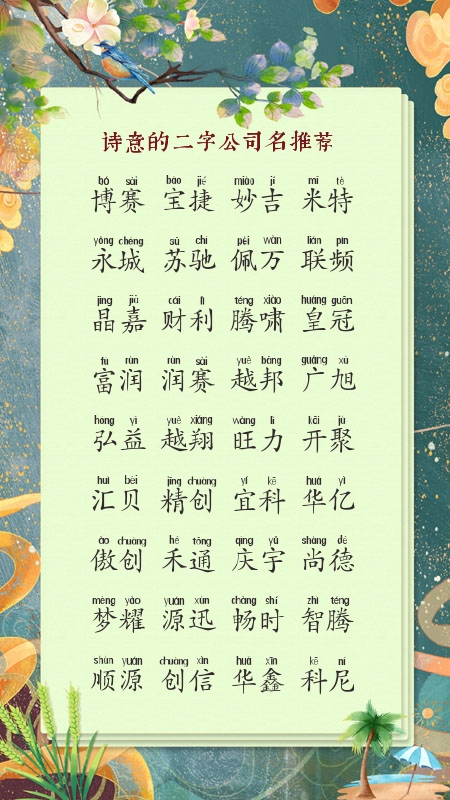 诗意的二字公司名推荐
bó sài bǎo jié miào jí mǐ tè
博赛 宝捷 妙吉 米特
yǒng chéng sū chí pèi wàn lián pín
永城 苏驰 佩万 联频
jīng jiā cái lì téng xiào huáng guān
晶嘉 财利 腾啸 皇冠
fù rùn rùn sài yuè bāng guǎng xù
富润 润赛 越邦 广旭
hóng yì yuè xiáng wàng lì kāi jù
弘益 越翔 旺力 开聚
huì bèi jīng chuàng yí kē huá yì
汇贝 精创 宜科 华亿
ào chuàng hé tōng qìng yǔ shàng dé
傲创 禾通 庆宇 尚德
mèng yào yuán xùn chàng shí zhì téng
梦耀 源迅 畅时 智腾
shùn yuán chuàng xìn huá xīn kē ní
顺源 创信 华鑫 科尼